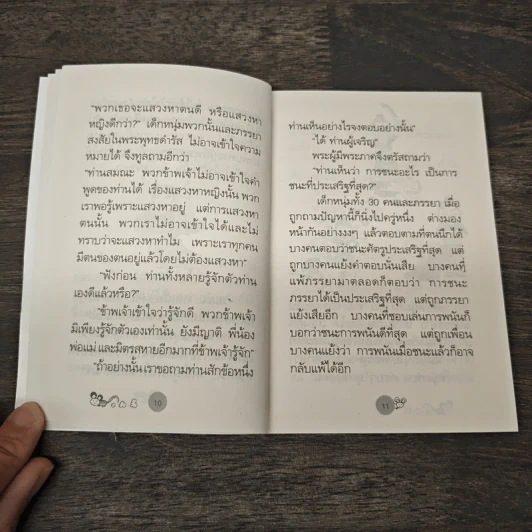 "พวกเธอจะแสวงหาตนดี หรือแสวงหา
หญิงดีกว่า?" เด็กหนุ่มพวกนั้นและภรรยา
สงสัยในพระพุทธดำรัส ไม่อาจเข้าใจความ
หมายได้ จึงทูลถามอีกว่า
"ท่านสมณะ พวกข้าพเจ้าไม่อาจเข้าใจคำ
พูดของท่านได้ เรื่องแสวงหาหญิงนั้น พวก
เราพอรู้เพราะแสวงหาอยู่ แต่การแสวงหา
ตนนั้น พวกเราไม่อาจเข้าใจได้และไม่
ทราบว่าจะแสวงหาทำไม เพราะเราทุกคน
มีตนของตนอยู่แล้วโดยไม่ต้องแสวงหา"
"ฟังก่อน ท่านทั้งหลายรู้จักตัวท่าน
เองดีแล้วหรือ?"
"ข้าพเจ้าเข้าใจว่ารู้จักดี พวกข้าพเจ้า
มิเพียงรู้จักตัวเองเท่านั้น ยังมีญาติ พี่น้อง
พ่อแม่ และมิตรสหายอีกมากที่ข้าพเจ้ารู้จัก"
"ถ้าอย่างนั้น เราขอถามท่านสักข้อหนึ่ง
10
ท่านเห็นอย่างไรจงตอบอย่างนั้น"
"ได้ ท่านผู้เจริญ"
พระผู้มีพระภาคจึงตรัสถามว่า
"ท่านเห็นว่า การชนะอะไร เป็นการ
ชนะที่ประเสริฐที่สุด?"
เด็กหนุ่มทั้ง 30 คนและภรรยา เมื่อ
ถูกถามปัญหานี้ก็นิ่งไปครู่หนึ่ง ต่างมอง
หน้ากันอย่างงงๆ แล้วตอบตามที่ตนนึกได้
บางคนตอบว่าชนะศัตรูประเสริฐที่สุด แต่
ถูกบางคนแย้งคำตอบนั้นเสีย บางคนที่
แพ้ภรรยามาตลอดก็ตอบว่า การชนะ
ภรรยาได้เป็นประเสริฐที่สุด แต่ถูกภรรยา
แย้งเสียอีก บางคนที่ชอบเล่นการพนันก็
บอกว่าชนะการพนันดีที่สุด แต่ถูกเพื่อน
บางคนแย้งว่า การพนันเมื่อชนะแล้วก็อาจ
กลับแพ้ได้อีก
11